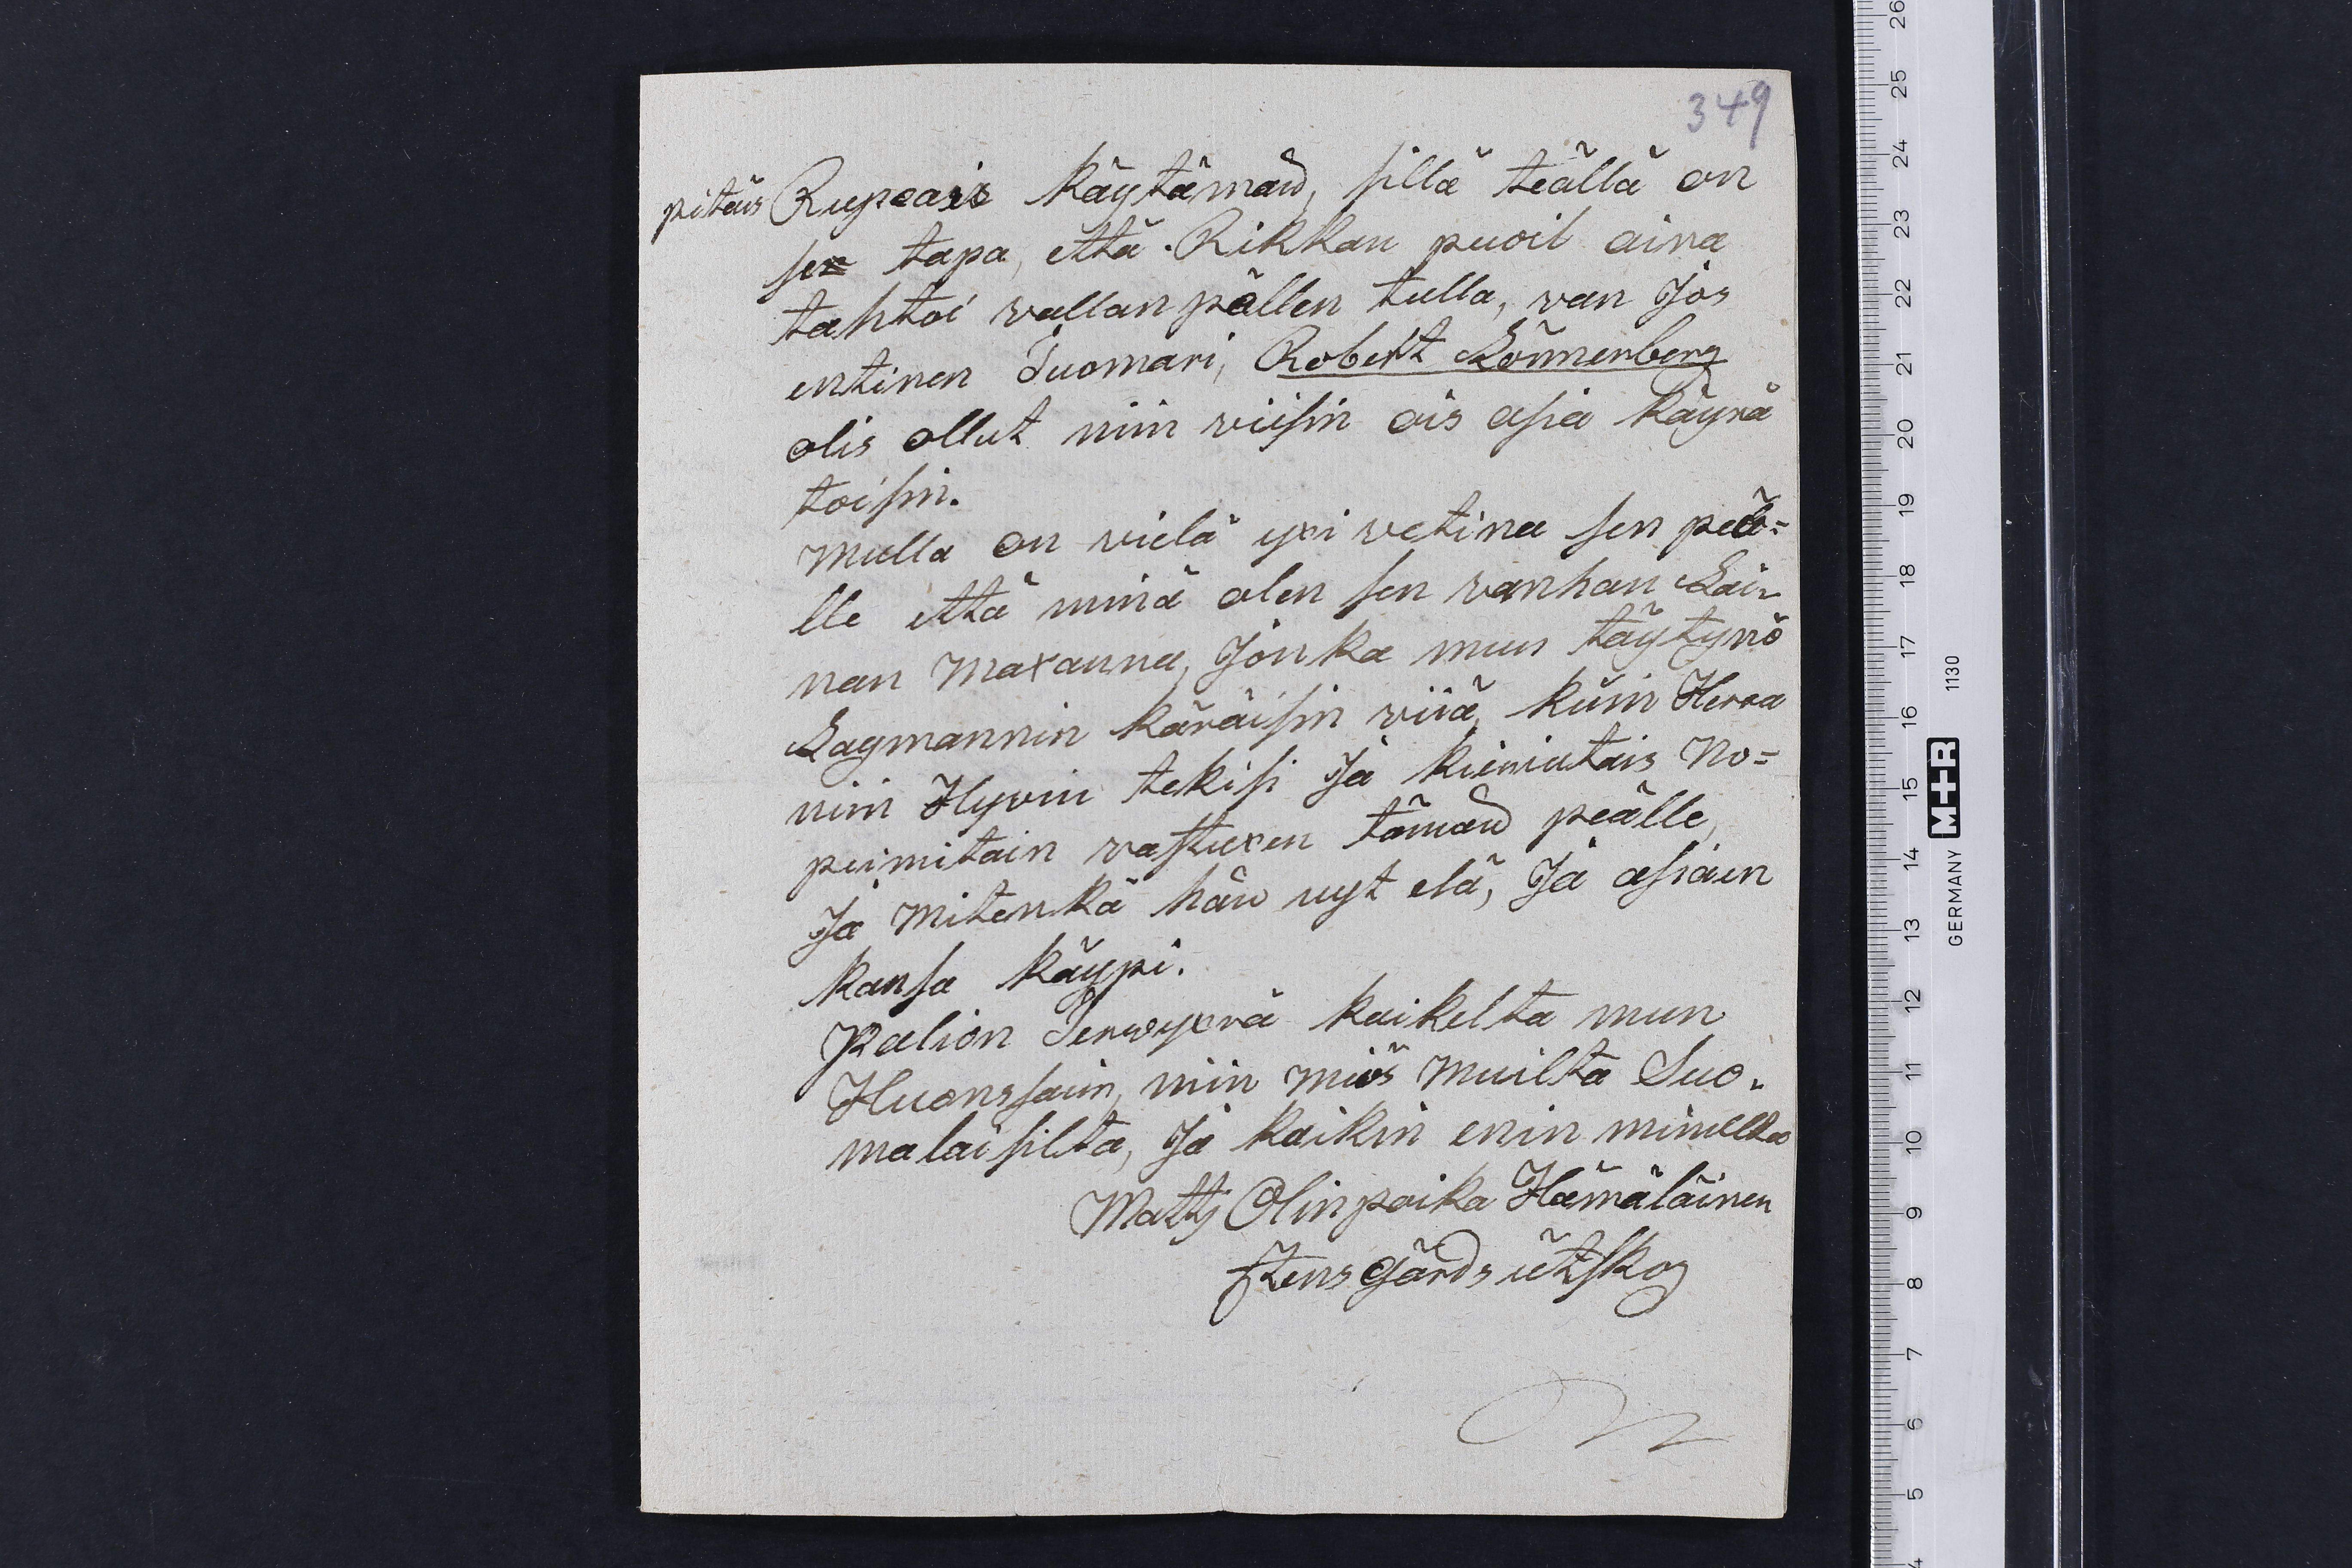 349
pitäis Rupeais käytämän, sillä teällä on
se tapa, että Rikkau puoil aina
tahtoi vallan pällen tulla, van Jos
entinen Tuomari, Robert Lönnerberg
olis ollut niin viisin ois asia käynä
toisin.
Mulla on vielä yxi vetina sen peä=
lle että minä olen sen vanhan Lai=
nan Maxanna, Jonka mun täytynö
Lagmannin käräisin viiä, kuin Herra
niin Hyvin tekisi Ja kirjutais No=
puimitain vastuxen tämän peälle,
Ja Mitenkä hän nyt elä, Ja asiain
kansa käypi.
Palion Terveyxvä kaikelta mun
Huonssain, niin miös Muilta Suo=
malaisilta, Ja kaikin enin minulta
Matts Olinpoika Hämäläinen
Stensgårds utskog
26
25
24
23
22
21
20
19
18
17
16
15
14
13
12
11
10
9
8
7
6
5
4
GERMANY M+R 1130